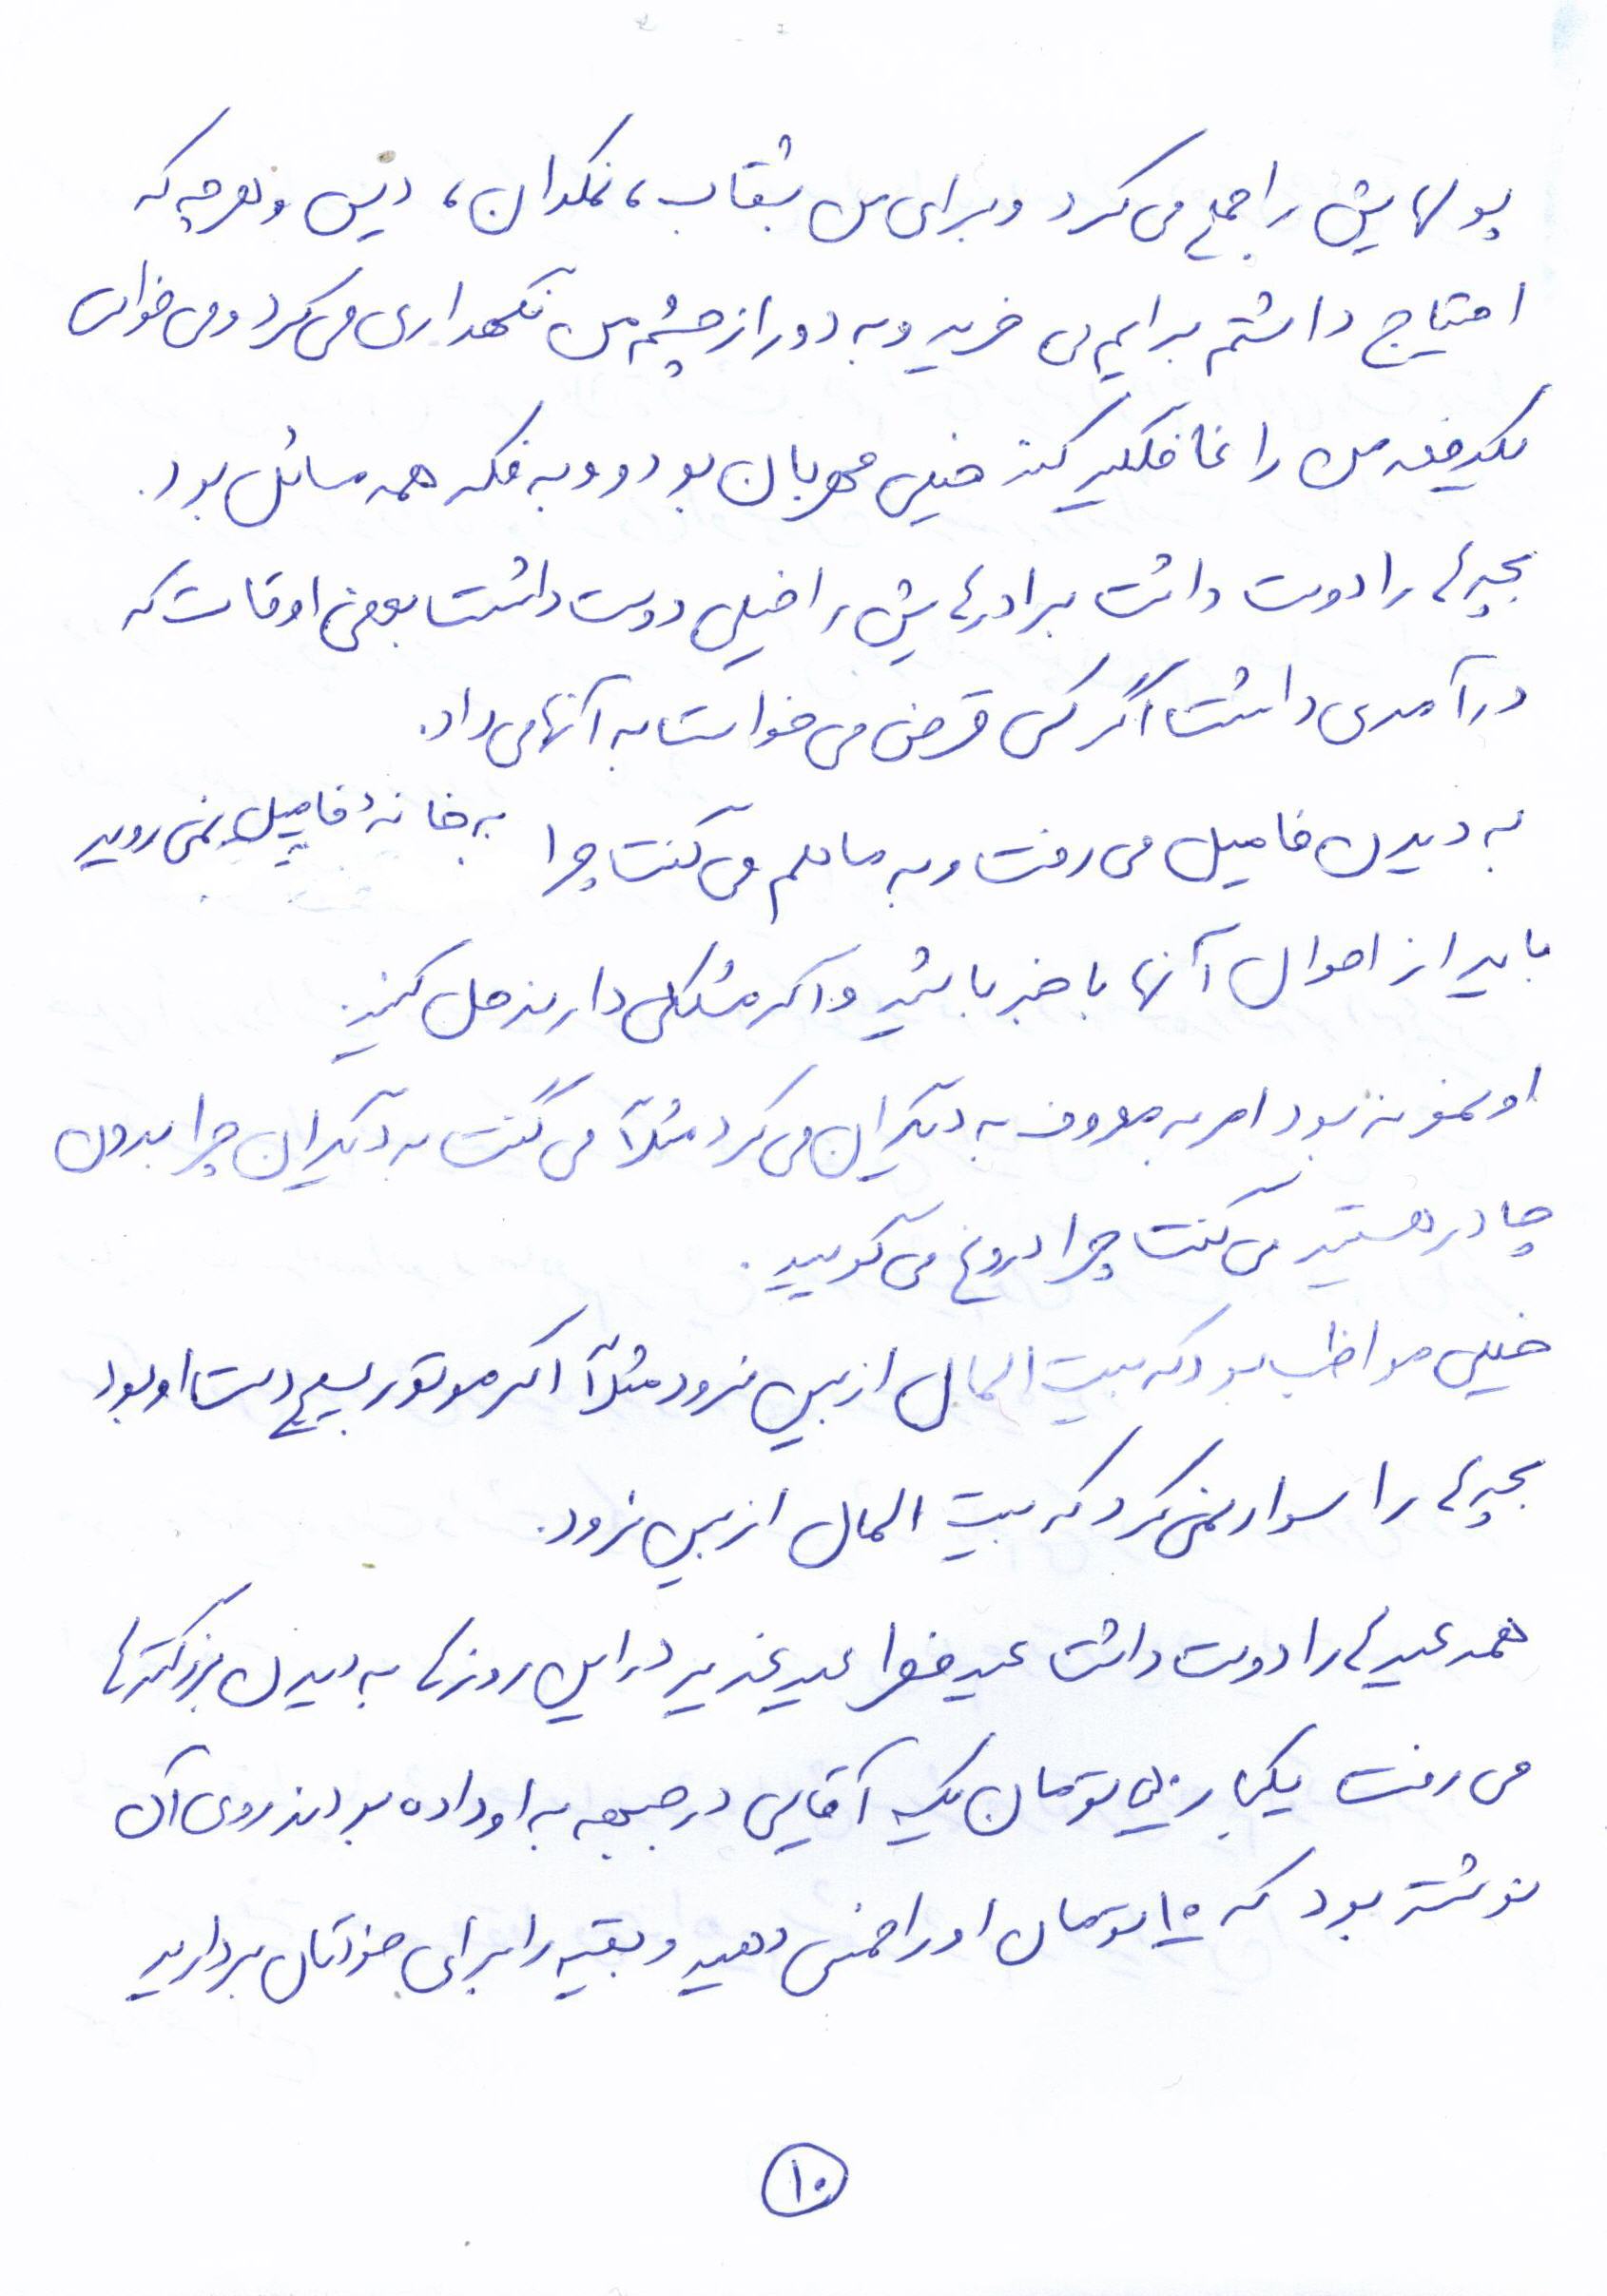 پولهایش را جمع می کرد و برای من بشقاب، نمکدان، دیس و هر چه که
احتیاج داشتم برایم می خرید و به دور از چشم من نگهداری می کرد و می خواست
یکدفعه من را غافلگیر کند خیلی مهربان بود و و به فکر همه مسائل بود.
بچه ها را دوست داشت برادرهایش را خیلی دوست داشت بعضی اوقات که
درآمدی داشت اگر کسی قرض می خواست به آنها می داد.
به دیدن فامیل می رفت و به ما هم می گفت چرا به خانهٔ فامیل نمی روید
باید از احوال آنها با خبر باشید و اگر مشکلی دارند حل کنید.
او نمونه بود امر به معروف به دیگران می کرد مثلاً می گفت به دیگران چرا بدون
چادر هستید می گفت چرا دروغ می گویید.
خیلی مواظب بود که بیت المال از بین نرود مثلاً اگر موتور بسیج دست او بود
بچه ها را سوار نمی کرد که بیت المال از بین نرود.
همه عیدها را دوست داشت عید فطر عید غدیر در این روزها به دیدن بزرگترها
می رفت یکبار تومان یک آقایی در جبهه به او داده بودند روی آن
نوشته بود که ۱۰ تومان او را خمس دهید و بقیه را برای خودتان بردارید
۱۰